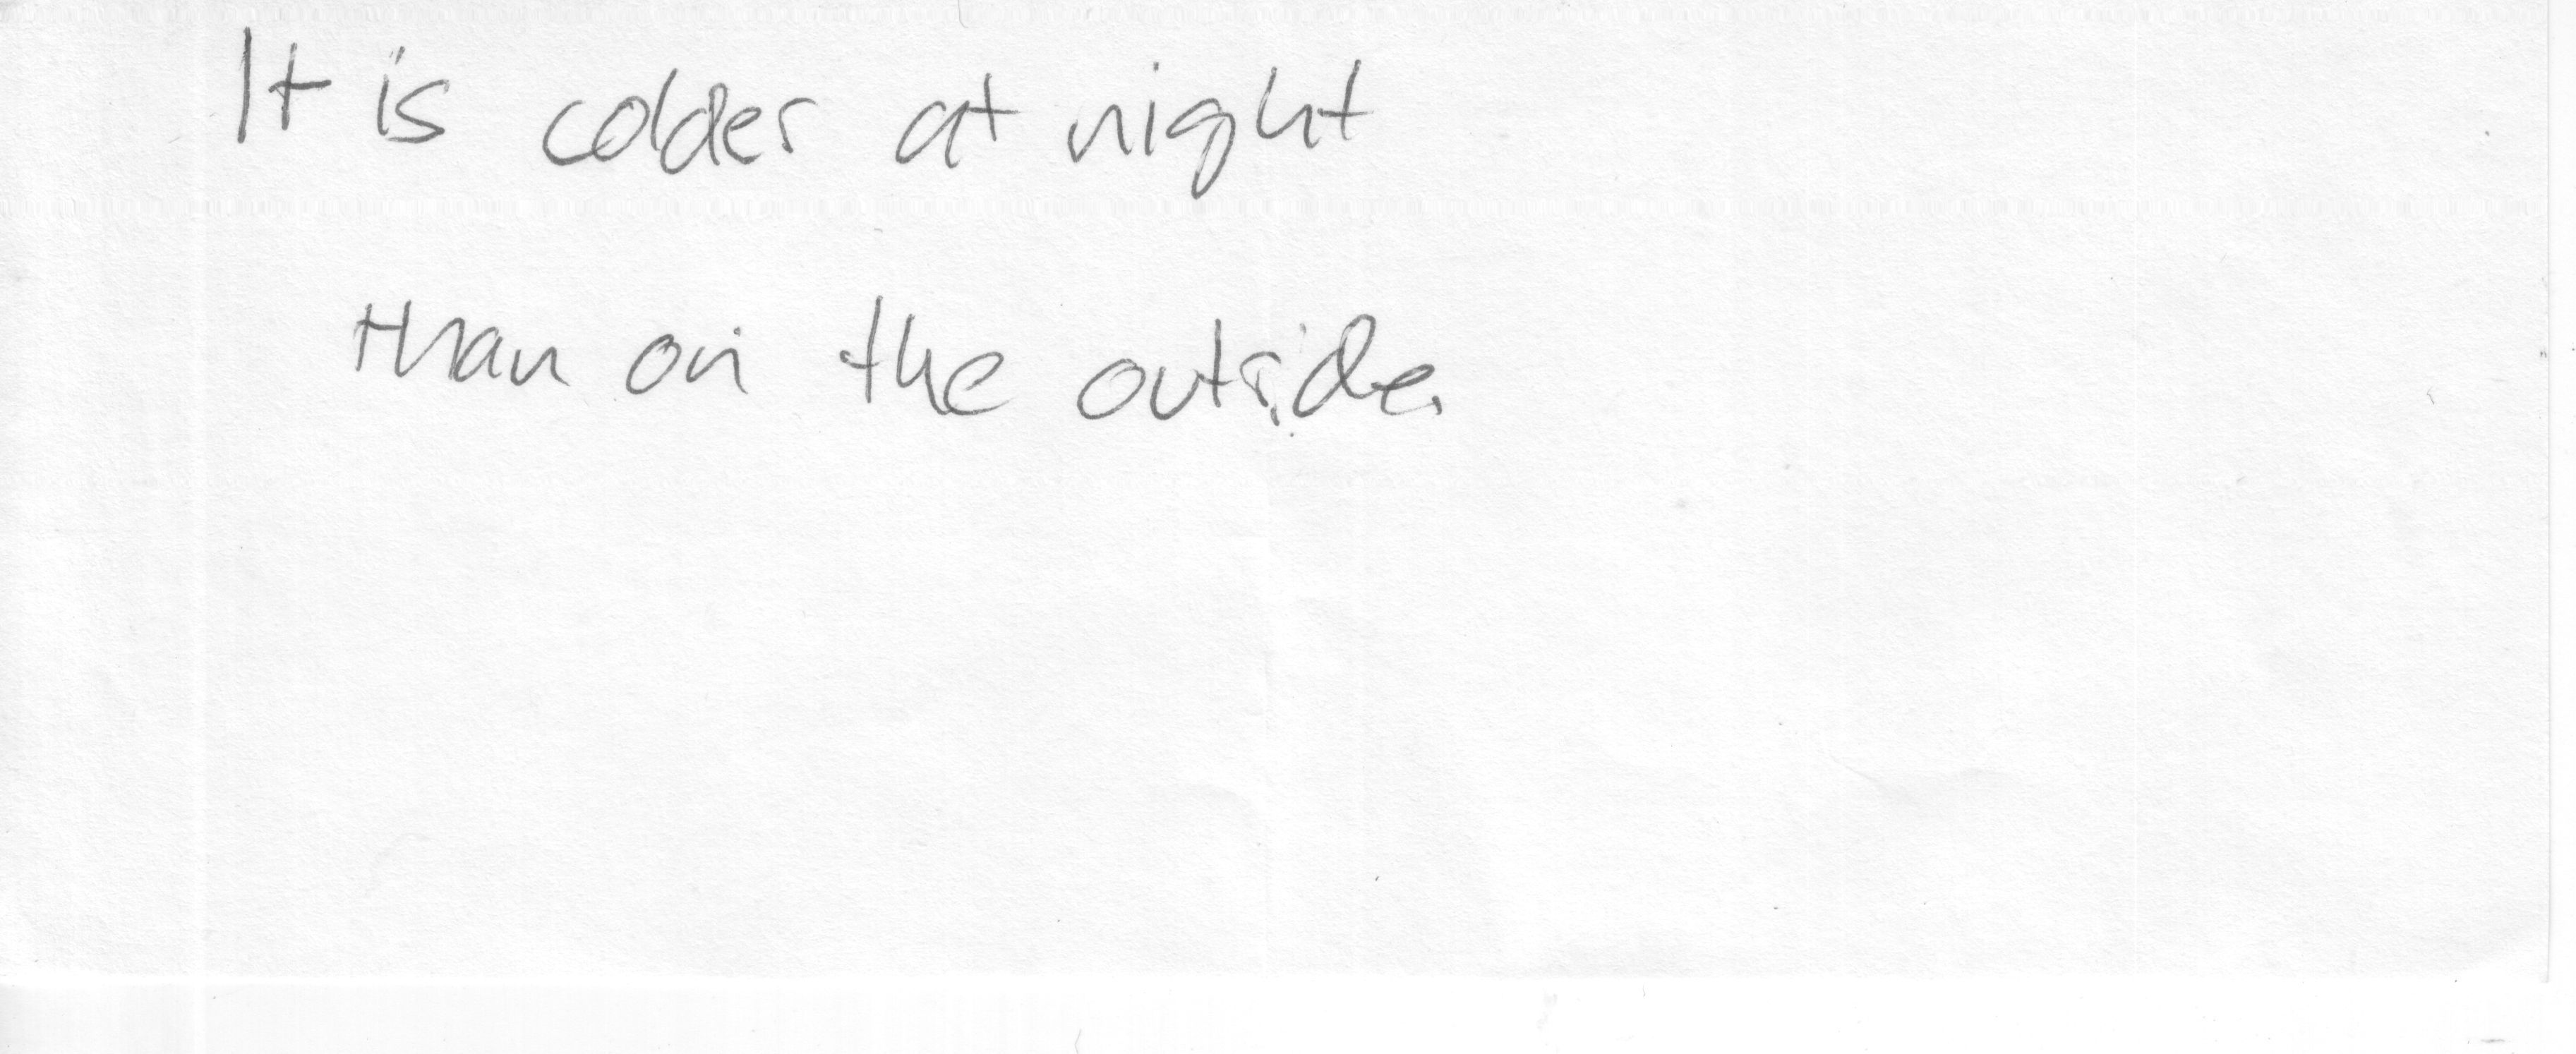 It is colder at night
than on the outside.